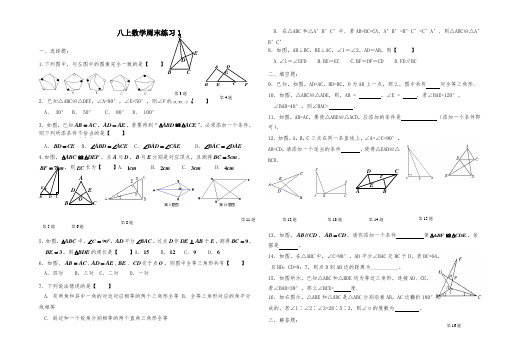 八上数学周末练习1
一、选择题：
1.下列图中，与左图中的图案完全一致的是【　】
2. 已知△ABC≌△DEF，∠A=80°，∠E=50°，则∠F的
A. 30° B. 50° C. 80° D. 100°
3. 如图，已知AB=AC，AD=AE，若要得到“△ABD≌△ACE”，必须添加一个条件，
则下列所添条件不恰当的是【　】
A. BD=CE B. ∠ABD=∠ACE C. ∠BAD=∠CAE D. ∠BAC=∠DAE
4.如图，△ABC≌△DEF，点A与D，B与E分别是对应顶点，且测得BC=5cm，
BF=7cm，则EC长为【　】A. 1cm B. 2cm C. 3cm D. 4cm
5.如图，△ABC中，∠C=90°，AD平分∠BAC，过点D作DE⊥AB于E，测得BC=9，
BE=3，则△BDE的周长是【　】A．15 B．12 C．9 D．6
6. 如图，AB=AC，AD=AE，BE，CD交于点O，则图中全等三角形共有【　】
A．四对 B．三对 C．二对 D．一对
7. 下列说法错误的是【　】
A. 有两角和其中一角的对边对应相等的两个三角形全等 B. 全等三角形对应的角平分
线相等
C. 斜边和一个锐角分别相等的两个直角三角形全等
D. 在△ABC和△A′B′C′中，若AB=BC=CA，A′B′=B′C′=C′A′，则△ABC≌△A′
B′C′
8. 如图，AB⊥BC，BE⊥AC，∠1=∠2，AD=AB，则【　】
A.∠1=∠EFD B.BE=EC C.BF=DF=CD D.FD∥BC
二、填空题：
9. 已知，如图，AD=AC，BD=BC，O为AB上一点，那么，图中共有　　对全等三角形．
10. 如图，△ABC≌△ADE，则，AB =　　，∠E =　　．若∠BAE=120°，
∠BAD=40°，则∠BAC=　　．
11. 如图，AB=AC，要使△ABE≌△ACD，应添加的条件是　　（添加一个条件即
可）.
12. 如图，A、B、C三点在同一条直线上，∠A=∠C=90°，
AB=CD，请添加一个适当的条件　　，使得△EAB≌△
BCD．
13. 如图，AB∥CD，AB=CD，请你添加一个条件　　使△ABF≌△CDE，依
据是　　．
14. 如图，在△ABC中，∠C=90°，AD平分∠BAC交BC于D，若BC=64，
且BD：CD=9：7，则点D到AB边的距离为　　．
15. 如图所示，已知△ABC和△BDE均为等边三角形，连接AD、CE，
若∠BAD=39°，那么∠BCE=　　度．
16. 如右图示，△ABE和△ADC是△ABC分别沿着AB、AC边翻折180°形
成的，若∠1∶∠2∶∠3=28∶5∶3，则∠α的度数为　　．
三、解答题：